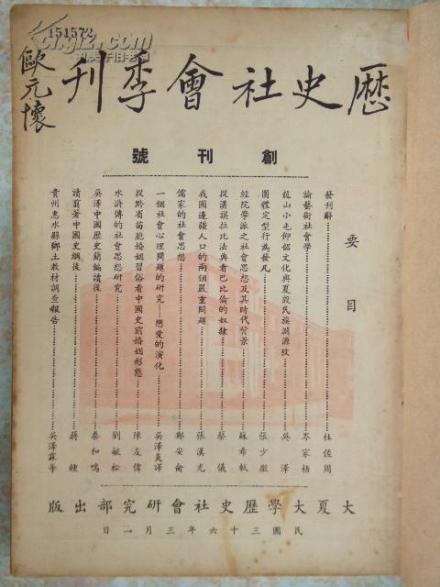 151572
歐元懷
歷史社會季刊
創刊號
要目
發刊辭 杜佐周
論藝術社會學 岑家梧
龍山小屯仰韶文化與夏殷民族淵源攷 吳澤
團體定型行為發凡 張少微
經院學派之社會思想及其時代背景 蘇希軾
從漢謨拉比法典看巴比倫的奴隸 蔡儀
我國邊疆人口的兩個嚴重問題 張漢光
儒家的社會思想 鄭安侖
一個社會心理問題的研究——戀愛的演化 吳澤炎譯
從黔省苗蠻婚姻習俗看中國史前婚姻形態 陳友偉
水滸傳的社會思想研究 劉敏松
吳澤中國歷史簡編讀後 秦和鳴
讀翦著中國史綱後 蔣鍾
貴州惠水縣鄉土教材調查報告 吳澤霖等
大夏大學歷史社會研究部出版
民國三十六年三月一日